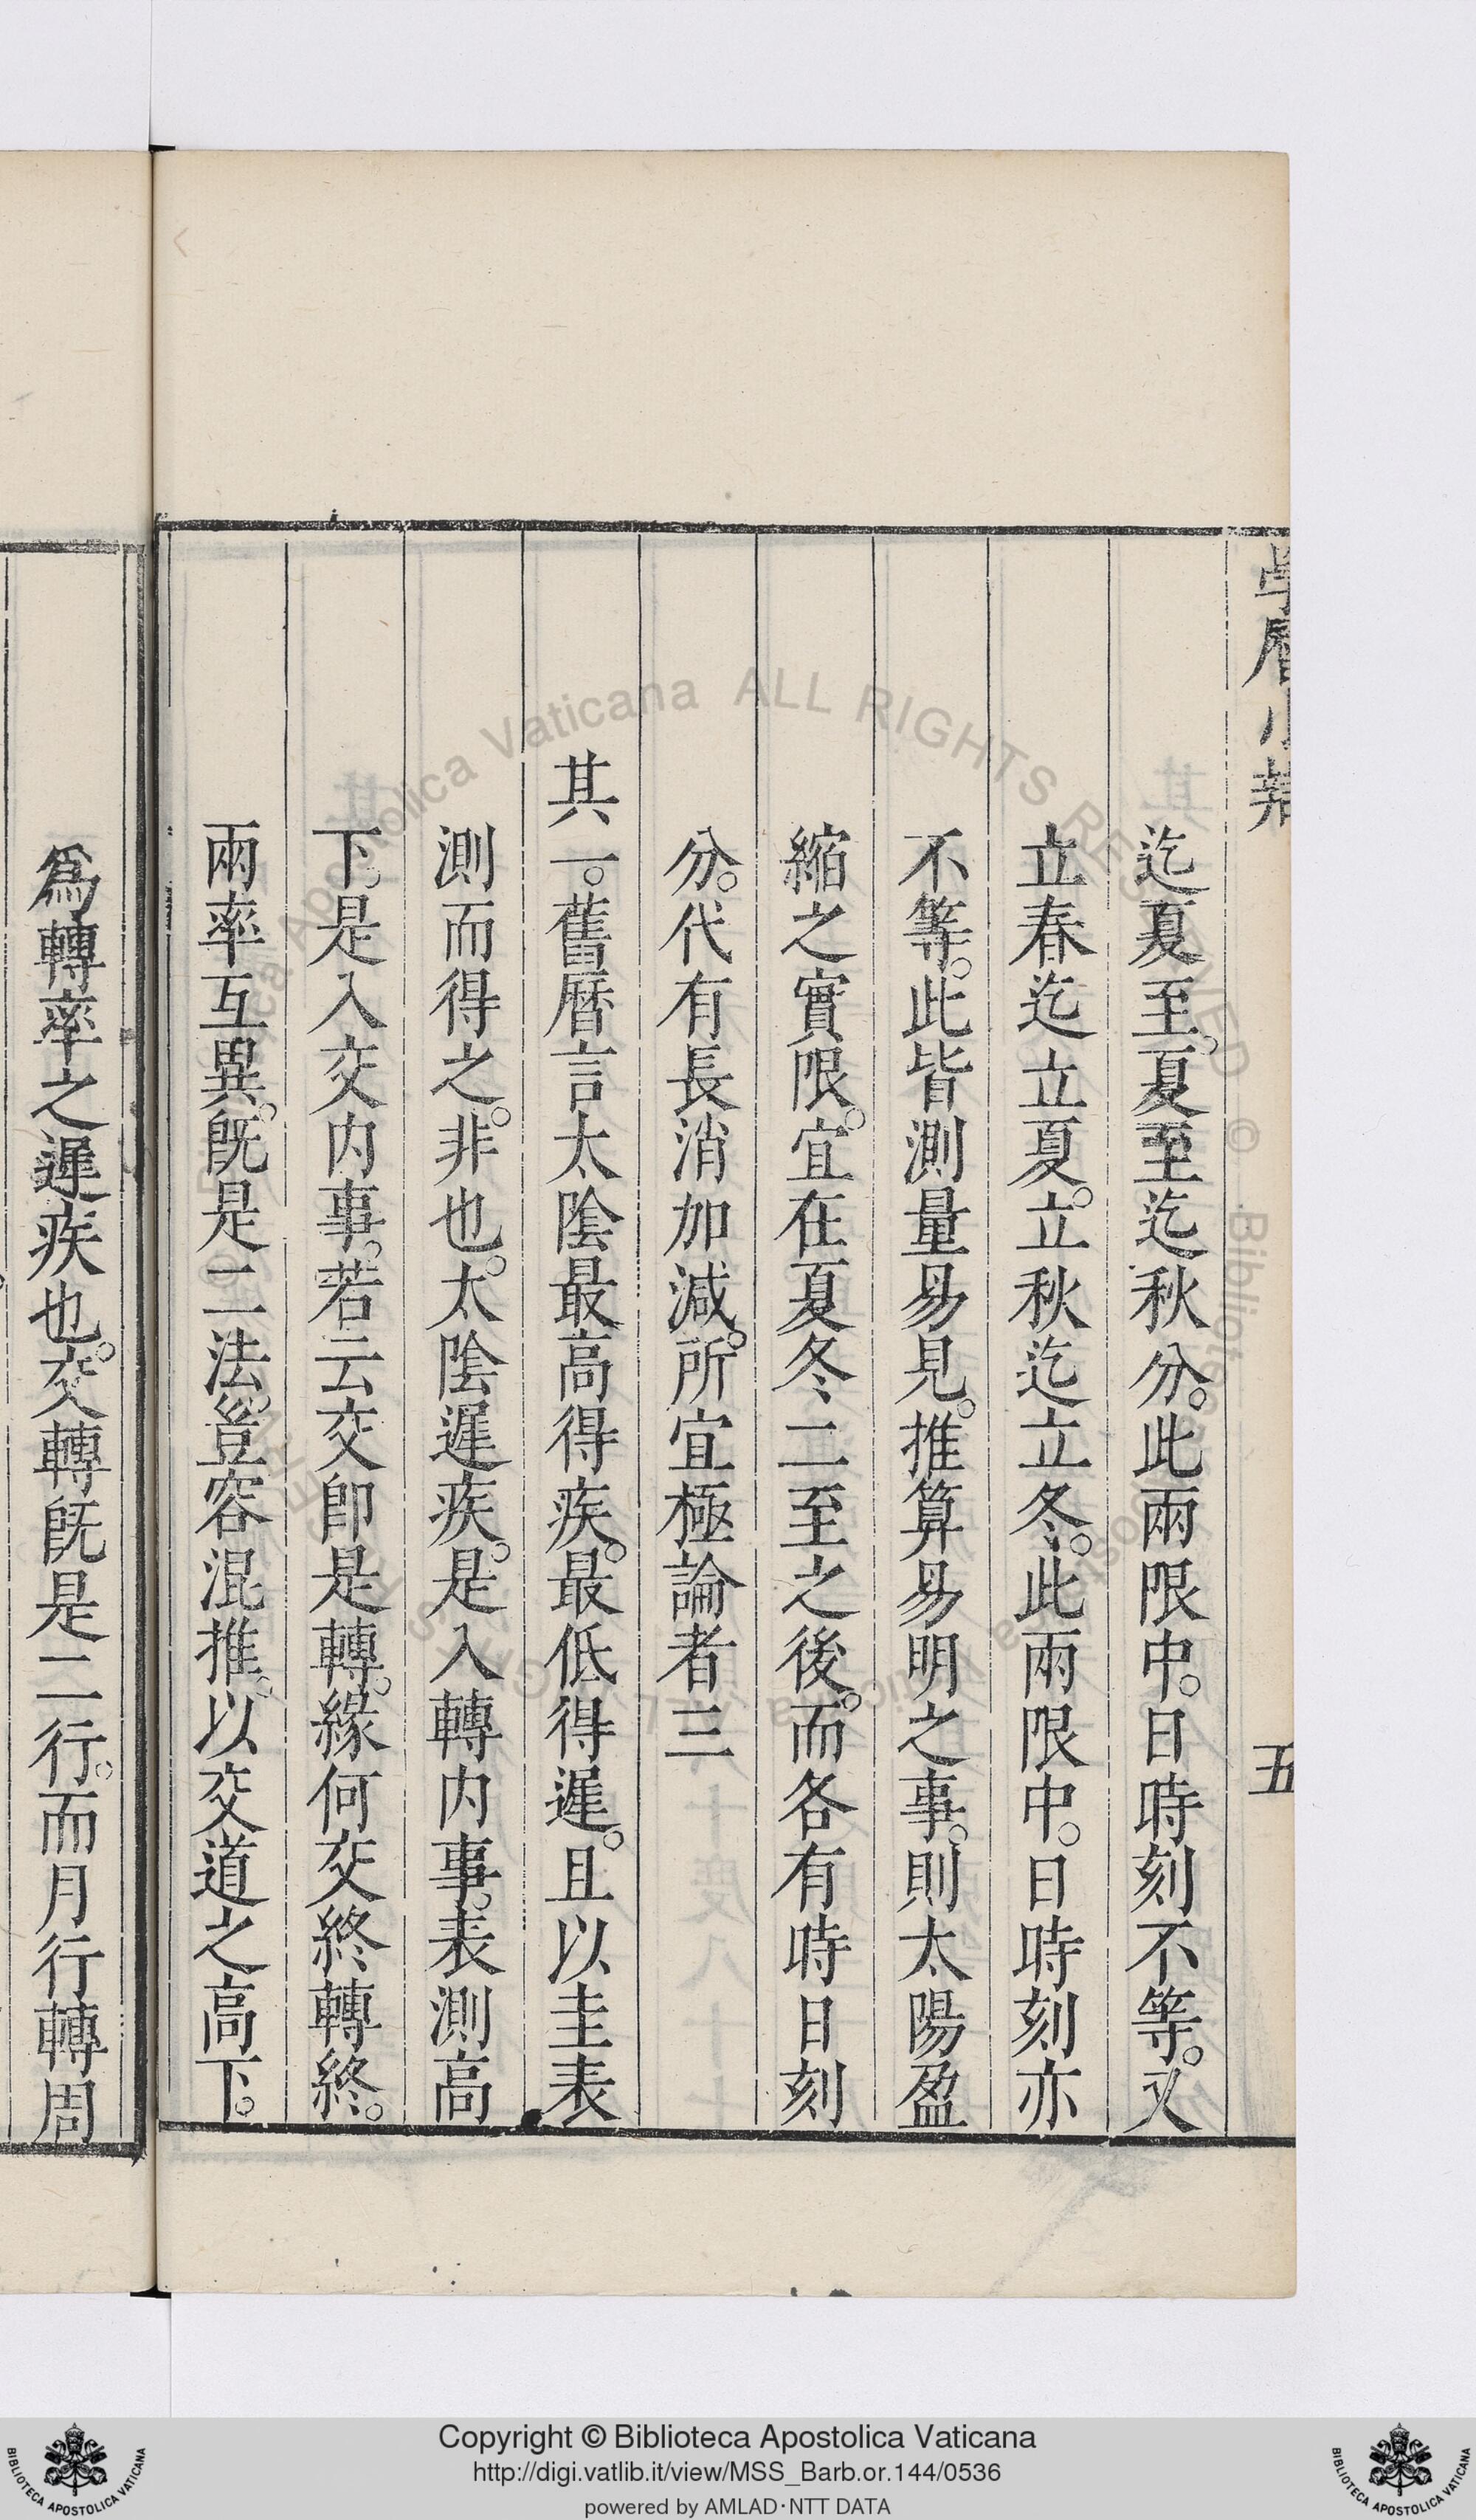 學曆小辯
五
迄夏至。夏至迄秋分。此兩限中。日時刻不等。又
立春迄立夏。立秋迄立冬。此兩限中。日時刻亦
不等。此皆測量易見。推算易明之事。則太陽盈
縮之實限。宜在夏冬二至之後。而各有時日刻
分。代有長消加減。所宜極論者三
其一。舊曆言太陰最高得疾。最低得遲。且以圭表
測而得之。非也。太陰遲疾。是入轉内事。表測高
下。是入交内事。若云交卽是轉。緣何交終轉終。
兩率互異。旣是二法。豈容混推。以交道之高下。
爲轉率之遲疾也。交轉旣是二行。而月行轉周
Biblioteca Apostolica Vaticana ALL RIGHTS RESERVED ©
Copyright © Biblioteca Apostolica Vaticana
http://digi.vatlib.it/view/MSS_Barb.or.144/0536
powered by AMLAD·NTT DATA
BIBLIOTECA APOSTOLICA VATICANA
BIBLIOTECA APOSTOLICA VATICANA